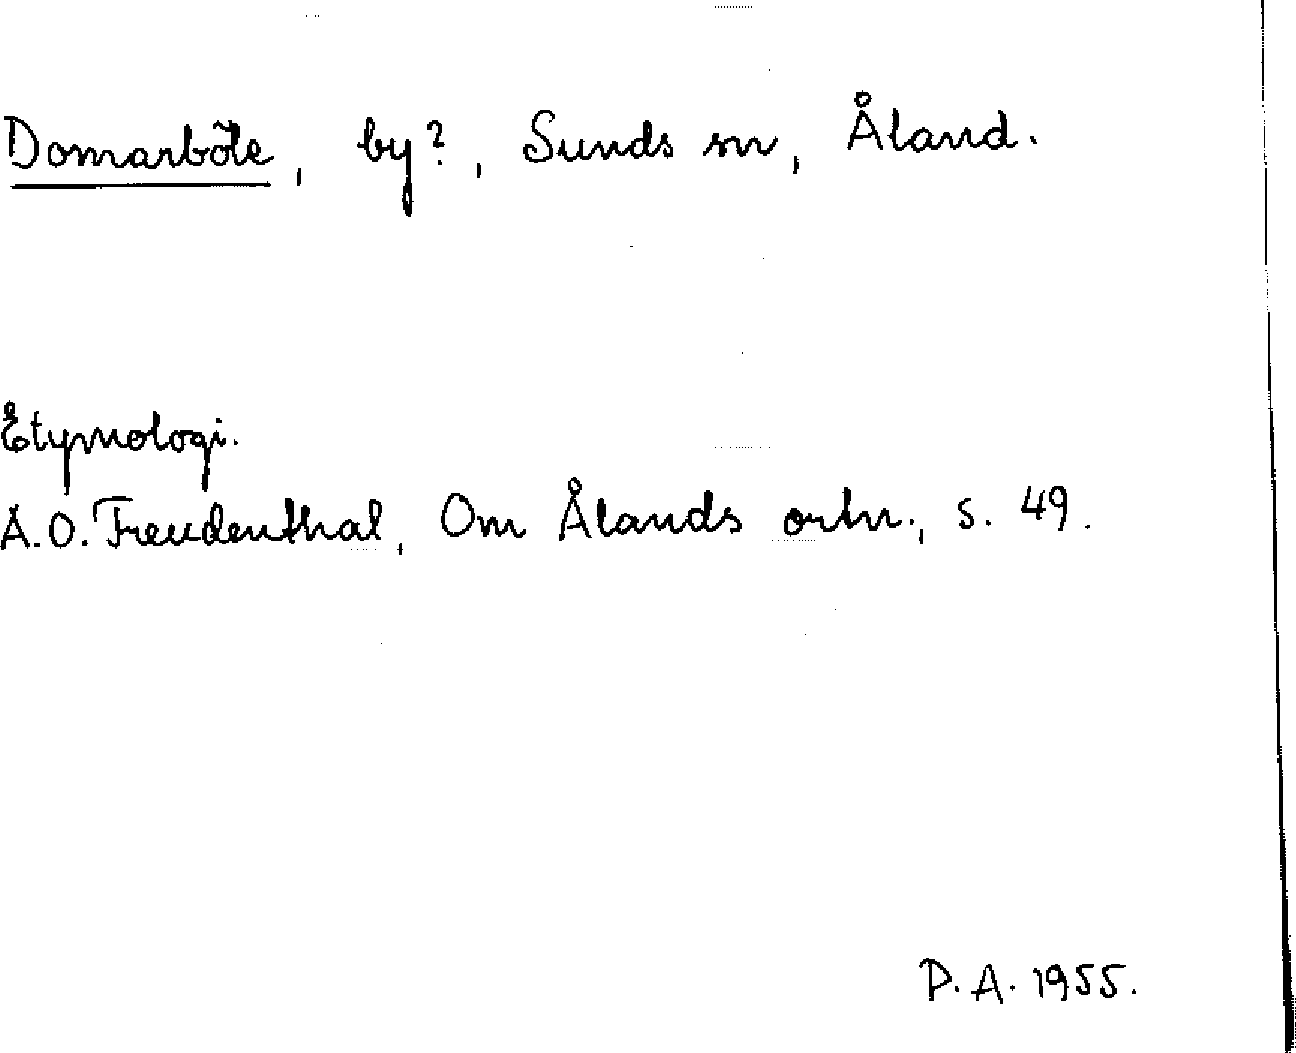 Domarböle, by?, Sunds sn, Åland.
Etymologi.
A.O. Freudenthal, Om Ålands ortn., s. 49.
P.A. 1955.